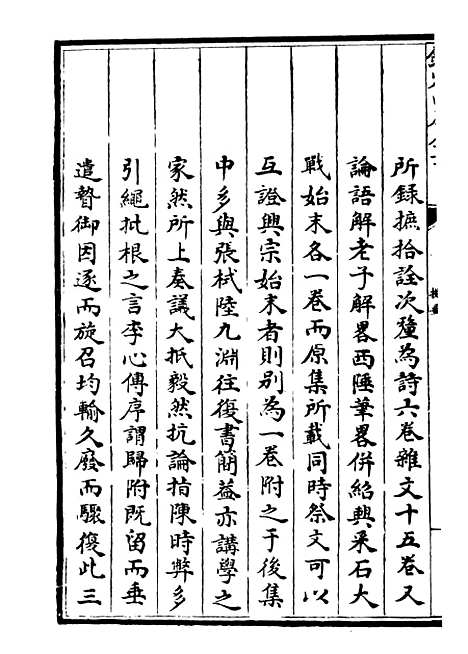 所録摭拾詮次釐為詩六卷雜文十五卷又
論語解老子解畧西陲筆畧併紹興采石大
戰始末各一卷而原集所載同時祭文可以
互證興宗始末者則别為一卷附之于後集
中多與張栻陸九淵往復書簡葢亦講學之
家然所上奏議大抵毅然抗論指陳時弊多
引繩批根之言李心傳序謂歸附既留而垂
遣暬御因逐而旋召均輸久廢而驟復此三